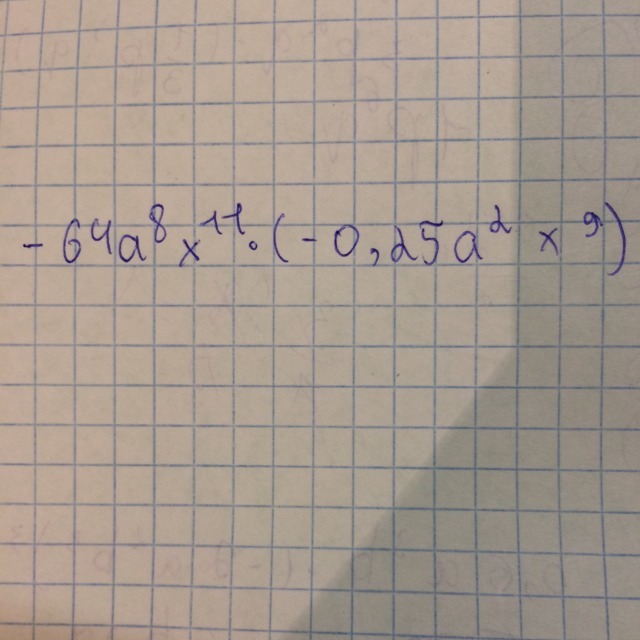 - 64a⁸x¹¹·(-0,25a²x⁹)